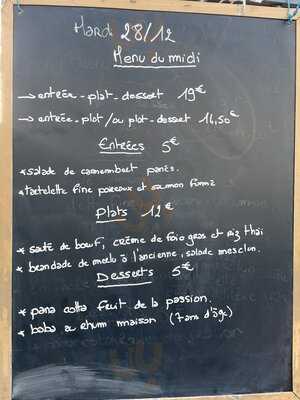 Mardi 28/12
Menu du midi
→ entrée - plat - dessert 19€
→ entrée - plat / ou plot - dessert 14,50€
Entrées 5€
* salade de camembert panés.
* tartelette fine poireaux et saumon fumé
Plats 12€
* sauté de bœuf, crème de foie gras et riz thaï
* brandade de morlu à l'ancienne, salade mesclun.
Desserts 5€
* pana cotta fruit de la passion.
* baba au rhum maison (7 ans d'âge)